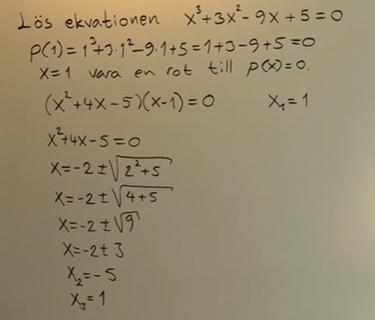 Lös ekvationen x³+3x²-9x+5=0
P(1)=1³+3·1²-9·1+5=1+3-9+5=0
x=1 vara en rot till p(x)=0.
(x²+4x-5)(x-1)=0 x₁=1
x²+4x-5=0
x=-2±√(2²+5)
x=-2±√(4+5)
x=-2±√9
x=-2±3
x₂=-5
x₃=1